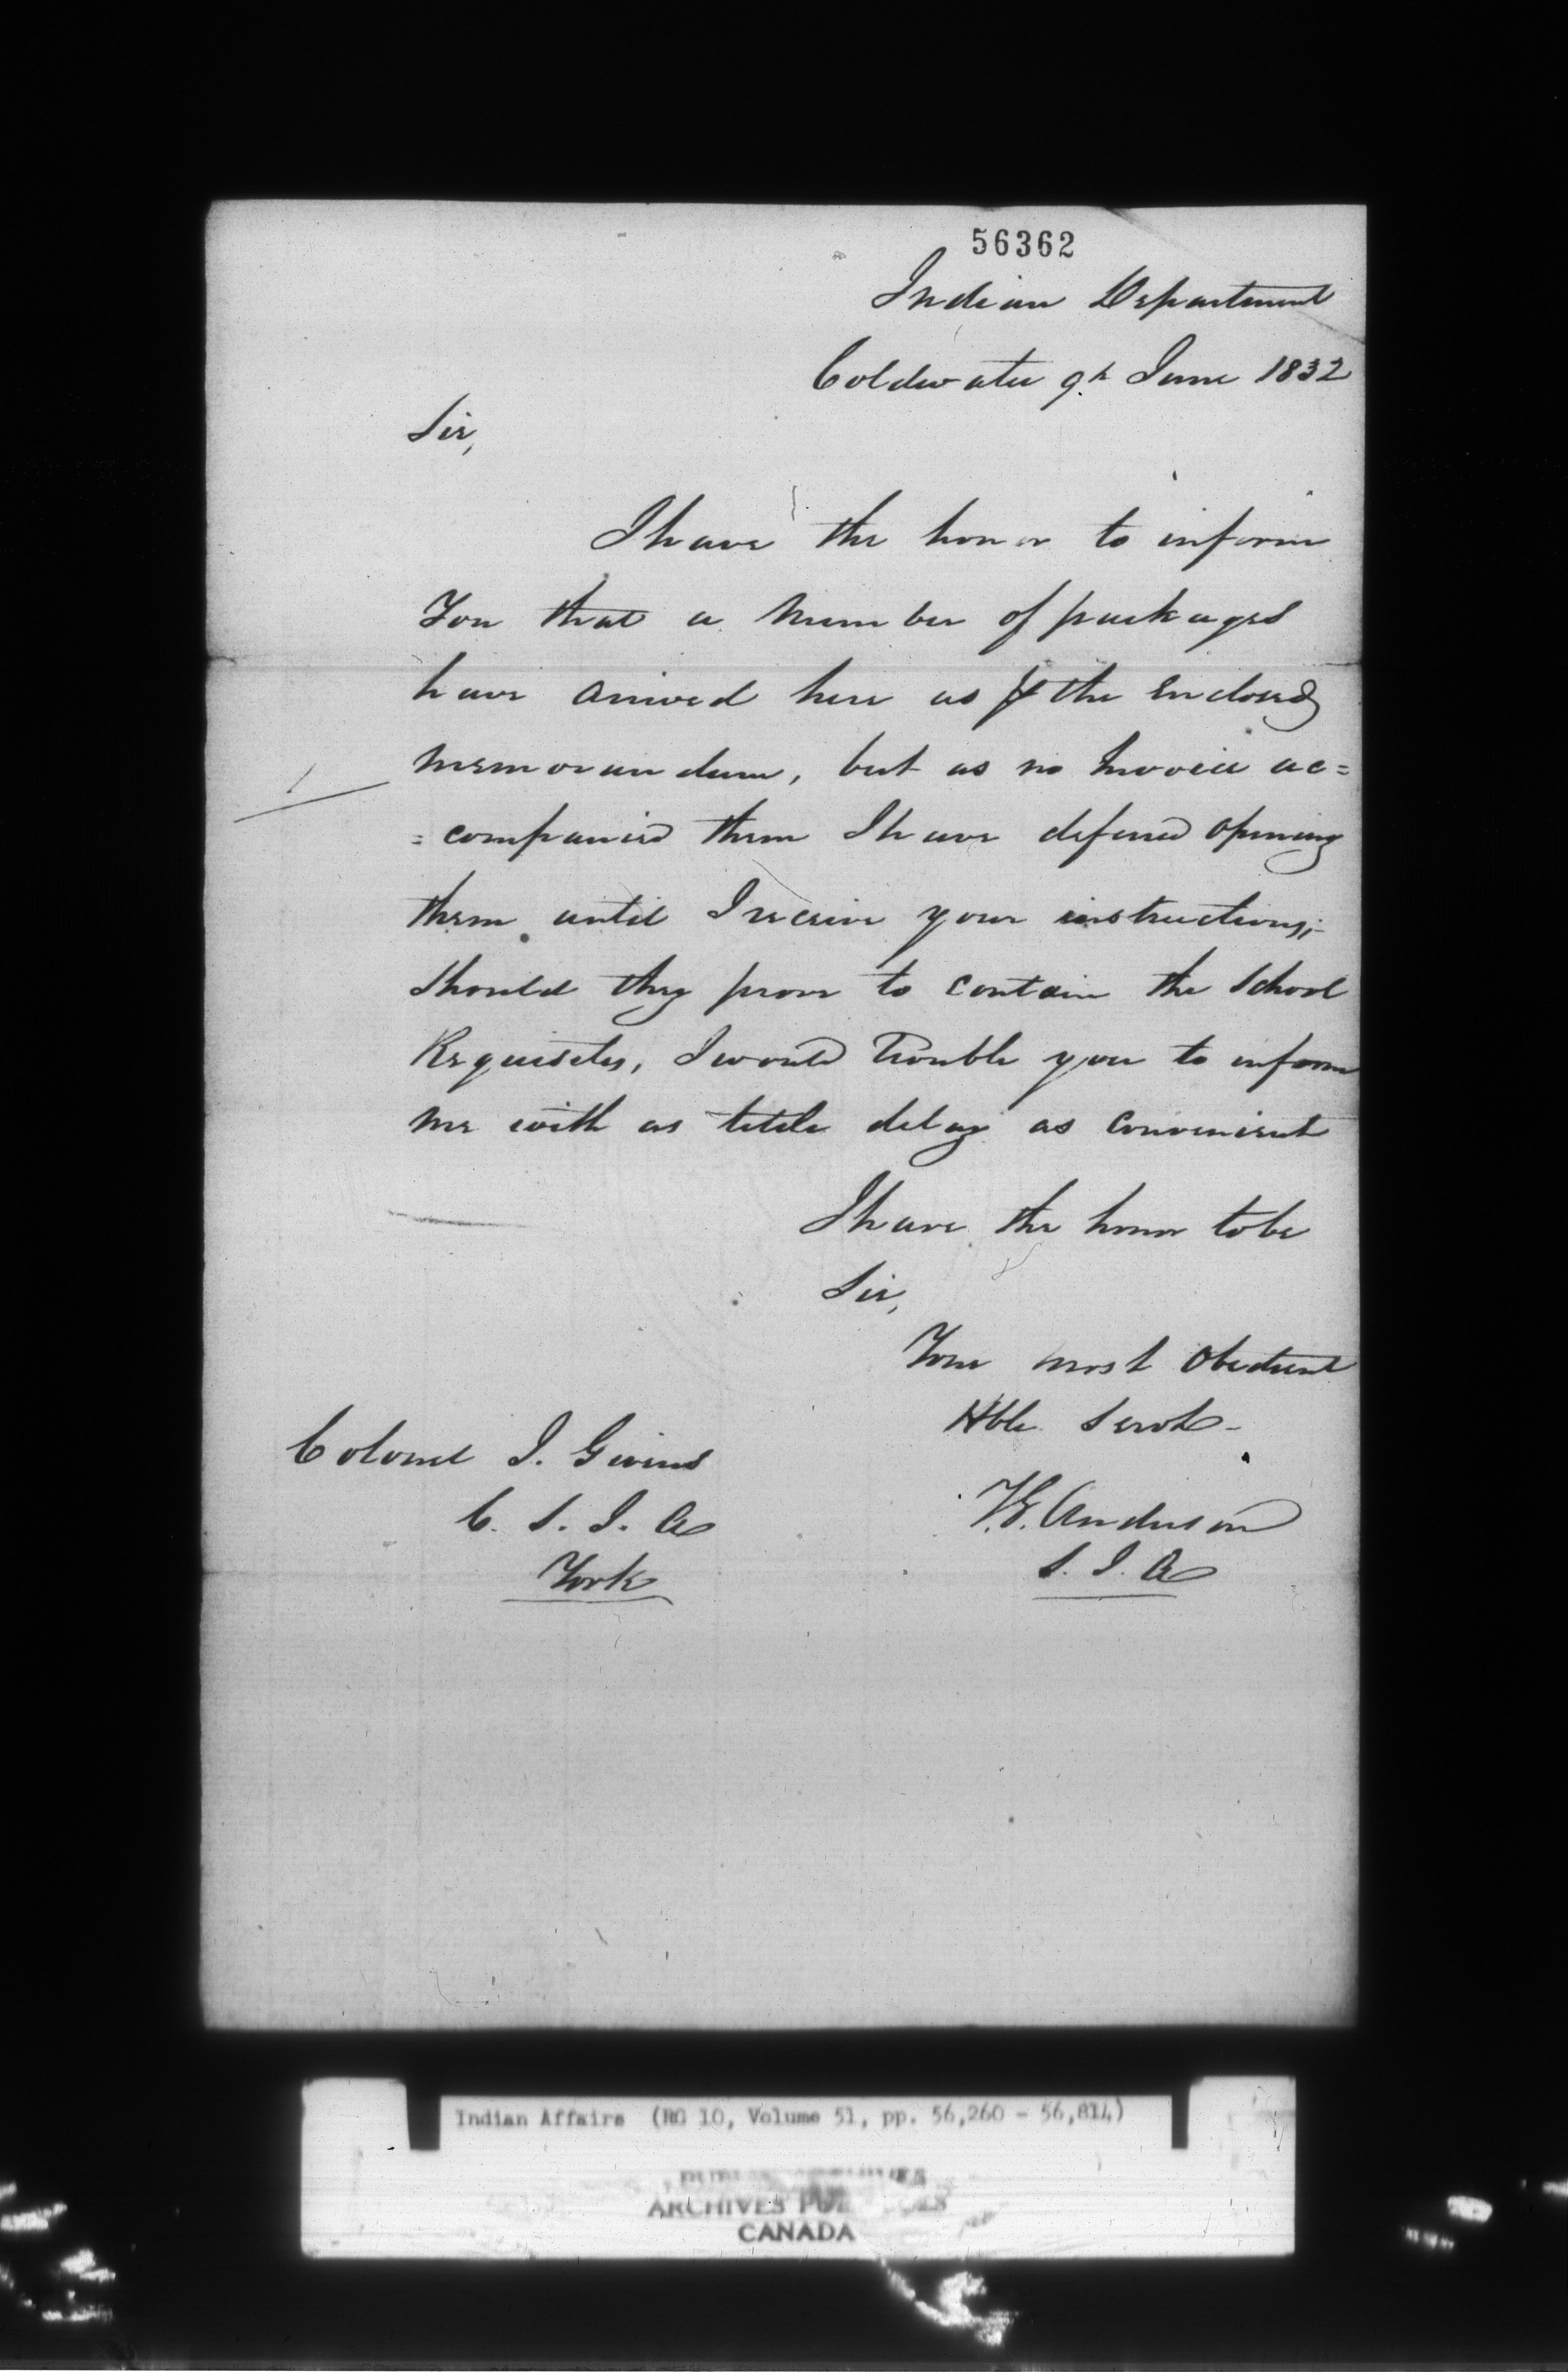 56362
Indian Department
Coldwater 9th June 1832
Sir,
I have the honor to inform
You that a Number of packages
have arrived here as ⅌ the Enclosed
Memorandum, but as no Invoice ac=
=companied them I have deferred opening
them until I receive your instructions;-
Should they prove to contain the School
Requisites, I would Trouble you to inform
me with as little delay as Convenient
I have the honor to be
Sir,
Your most Obedient
Hble Servt-
T.G. Anderson
S. I. A
Colonel J. Givins
C. S. I. A
York
Indian Affairs (RG 10, Volume 51, pp. 56,260 - 56,814)
ARCHIVES
ARCHIVES PUBLIQUES
CANADA